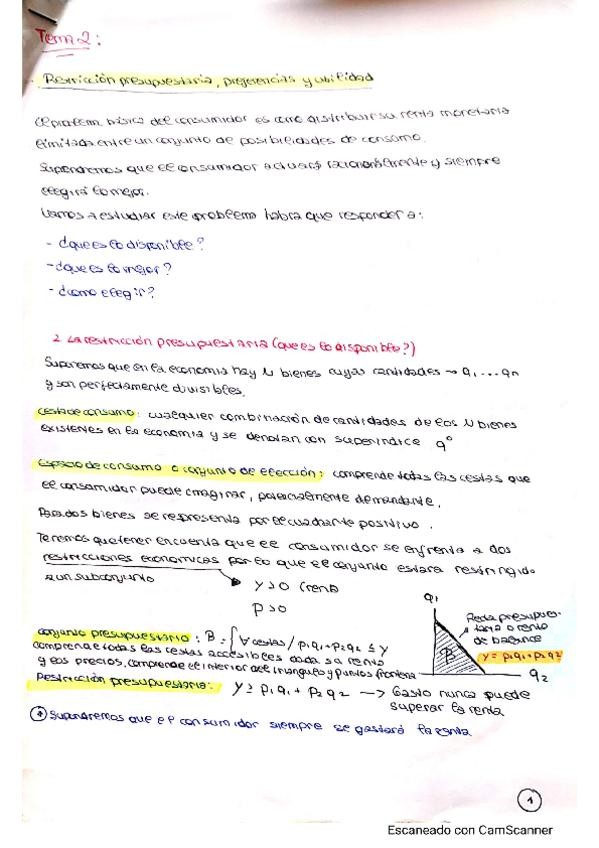 Tema 2:
Restricción presupuestaria, preferencias y utilidad
El problema básico del consumidor es como distribuir su renta monetaria
limitada entre un conjunto de posibilidades de consumo.
Supondremos que el consumidor actuará racionalmente y siempre
elegirá lo mejor.
Vamos a estudiar este problema habra que responder a:
- ¿que es lo disponible?
- ¿que es lo mejor?
- ¿como elegir?
2. La restricción presupuestaria (que es lo disponible?)
Suponemos que en la economia hay N bienes cuyas cantidades → q1 ... qn
y son perfectamente divisibles.
Cesta de consumo: cualquier combinación de cantidades de los N bienes
existentes en la economia y se denotan con superindice q⁰
Espacio de consumo o conjunto de elección: comprende todas las cestas que
el consumidor puede imaginar, potencialmente demandante.
Para dos bienes se representa por el cuadrante positivo.
Tenemos que tener en cuenta que el consumidor se enfrenta a dos
restricciones economicas por lo que el conjunto estara restringido
a un subconjunto
y>0 (renta
p>0
q1
Recta presupues-
taria o renta
de balance
y = p1q1+p2q2
B
q2
Conjunto presupuestario: B = { ∀ cestas / p1q1+p2q2 ≤ y
comprende todas las cestas accesibles dada su renta
y los precios, comprende el interior del triangulo y puntos frontera
Restricción presupuestaria: y ≥ p1q1 + p2q2 → Gasto nunca puede
superar la renta
Supondremos que el consumidor siempre se gastará la renta
1
Escaneado con CamScanner